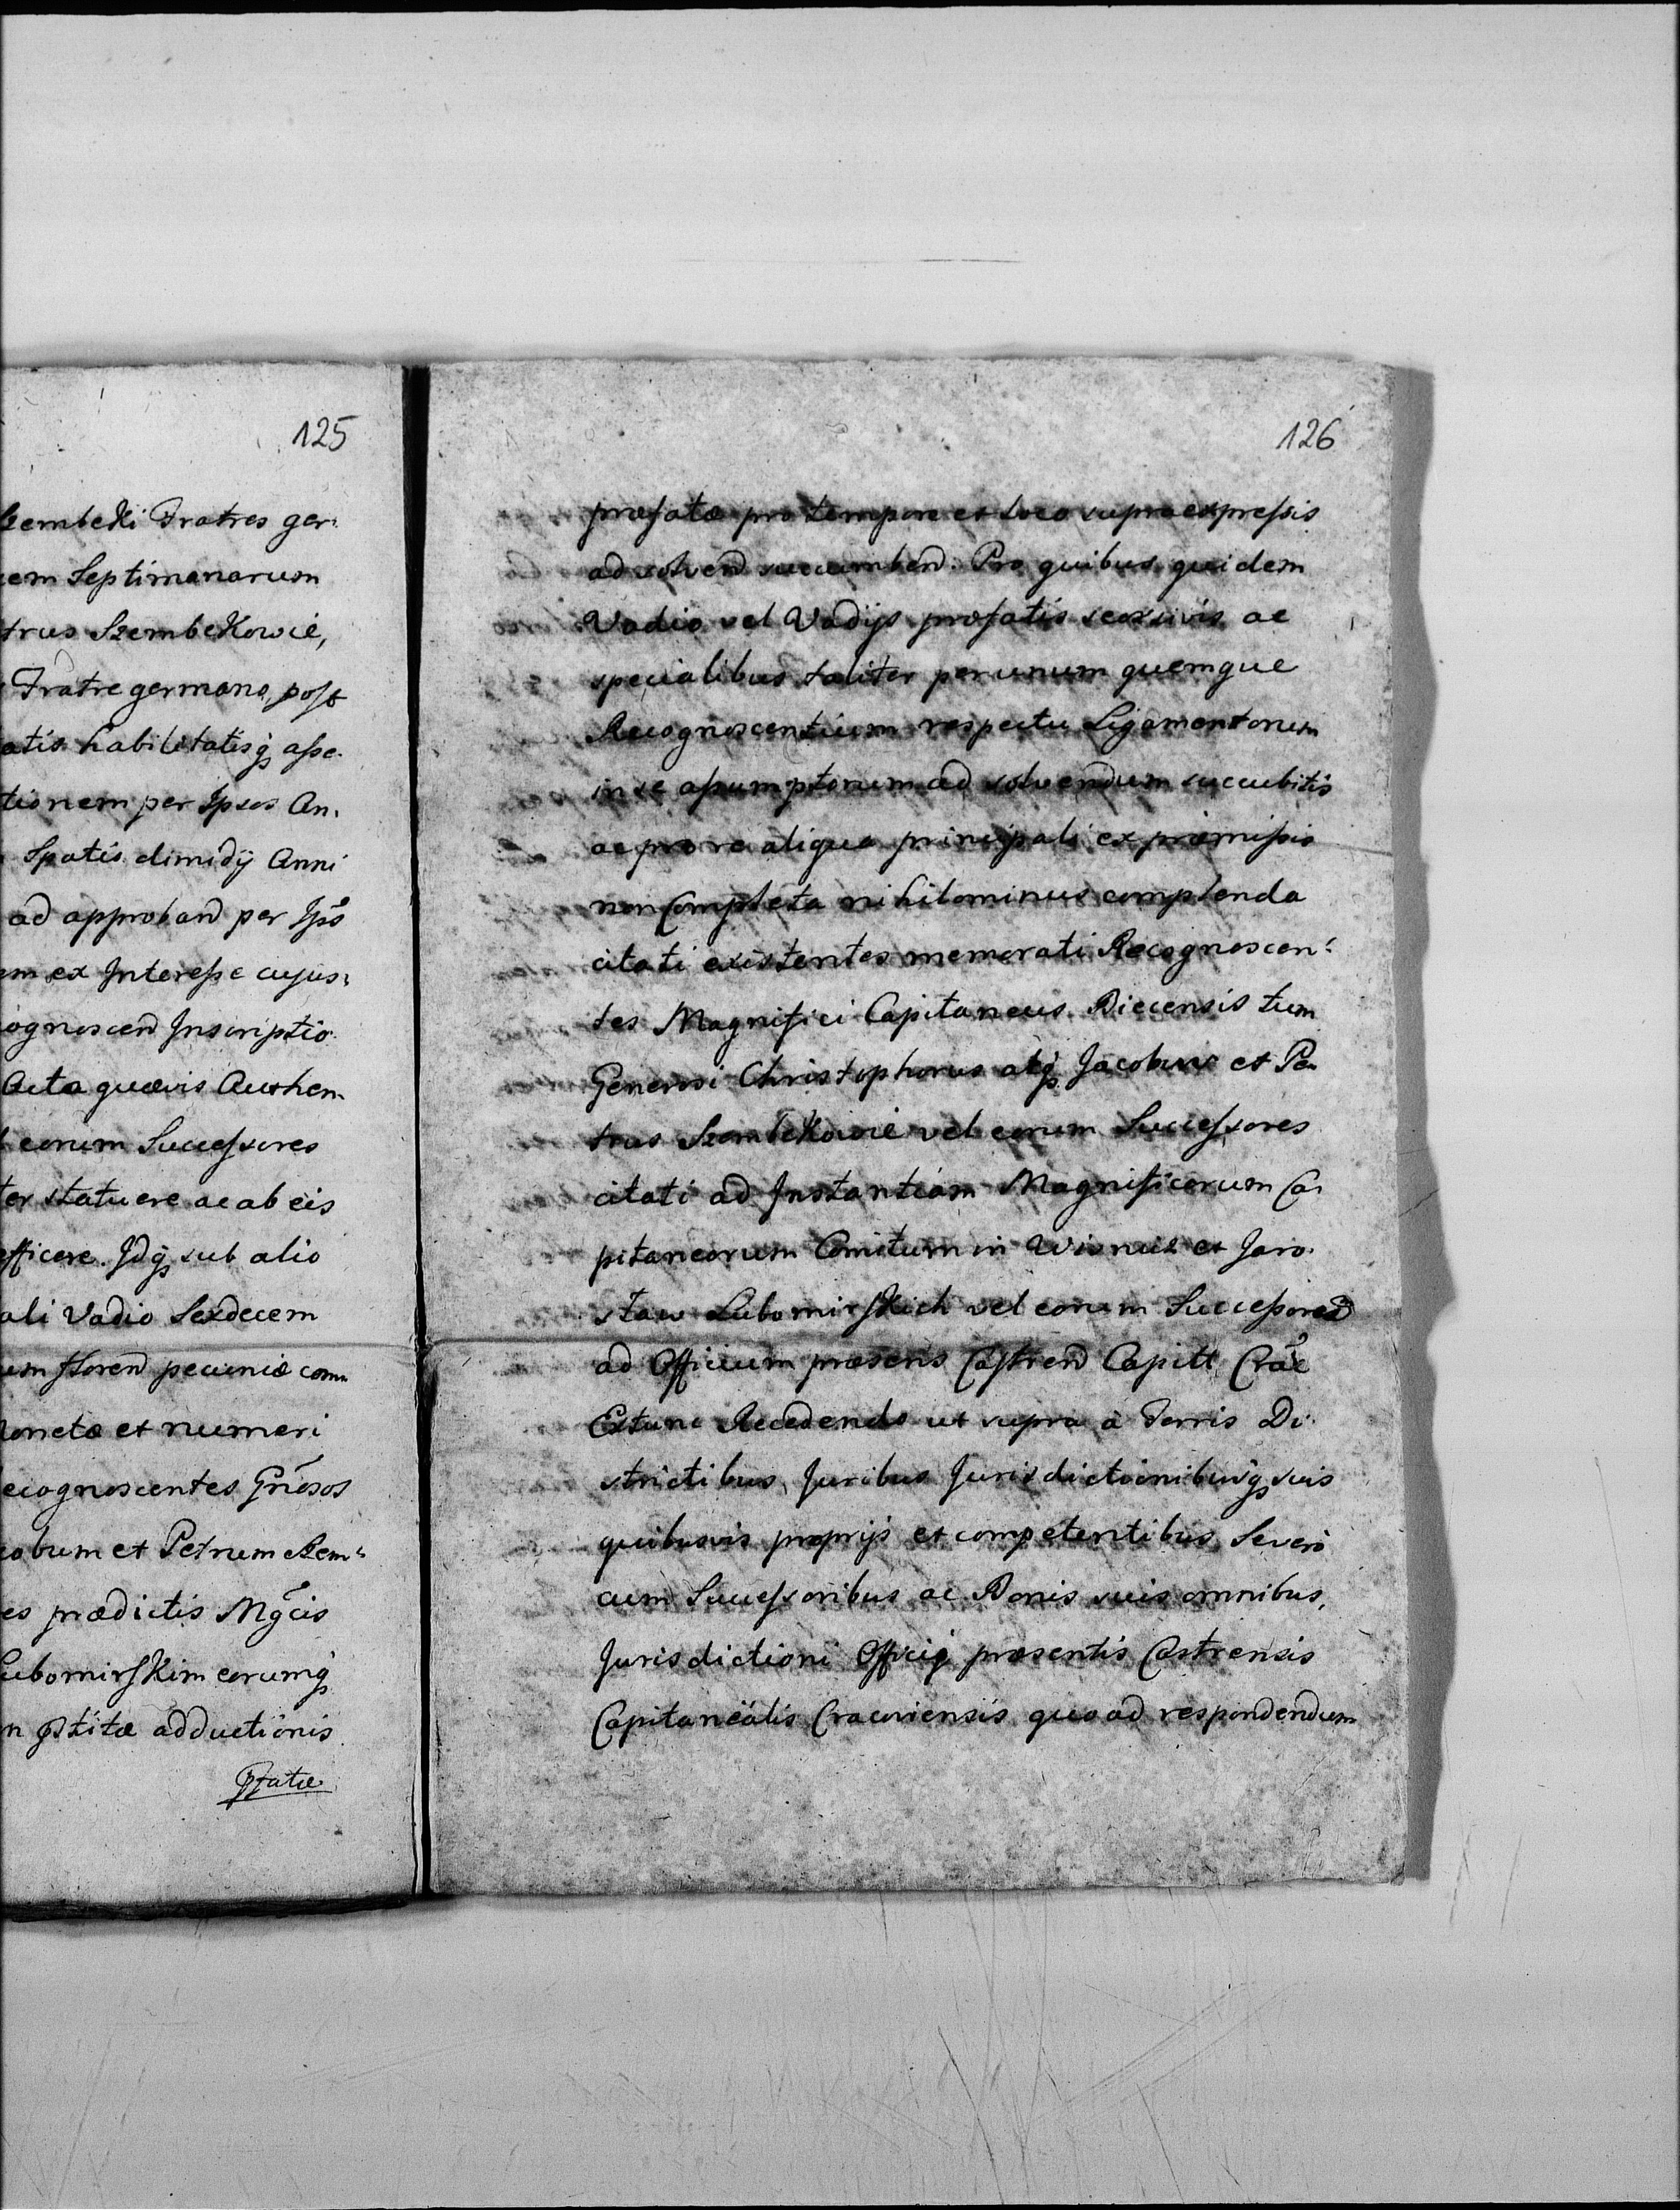 125
zembeki Fratres ger:
em Septimanarum
trus Szembekowie,
Fratre germano, post
atis habilitatisq asse.
tionem per Ipsos An.
Spatis dimidij Anni
ad approband per Ipos
um ex Interesse cujus:
ognoscend Inscriptio
Acta quævis Authen.
l eorum Successores
ter statuere ac ab eis
efficere. Idq sub alio
ali Vadio Sexdecem
um floren pecuniæ com
onetæ et numeri
ecognoscentes Gnosos
cobum et Petrum Szem:
es prædictis Mgcis
Lubomirskim eorumq
n Pstitæ adductionis
Pfatæ
126
præfatæ pro tempore et loco supraexpressis
ad solvend succumbend. Pro quibus quidem
Vadio vel Vadijs præfatis seorsivis ac
specialibus taliter per unum quemque
Recognoscentium respectu Ligamentorum
in se assumptorum ad solvendum succubitis
ac pro re aliqua principali ex præmissis
non Completa nihilominus complenda
citati existentes memorati Recognoscen:
tes Magnifici Capitaneus Biecensis tum
Generosi Christophorus atq Jacobus et Pe
trus Szembekowie vel eorum Successores
citati ad Instantiam Magnificorum Ca
pitaneorum Comitum in Wisnicz et Jaro.
staw Lubomirskich vel eorum Successored
ad Officium præsens Castrend Capitt Crac
Extunc Recedendo ut supra à Terris Di
strictibus, Juribus Jurisdictoinibusq suis
quibusvis proprijs et competentibus Seveò
cum Successoribus ac Bonis suis omnibus,
Jurisdictioni Officij præsentis Castrensis
Capitanealis Cracoviensis quo ad respondendum